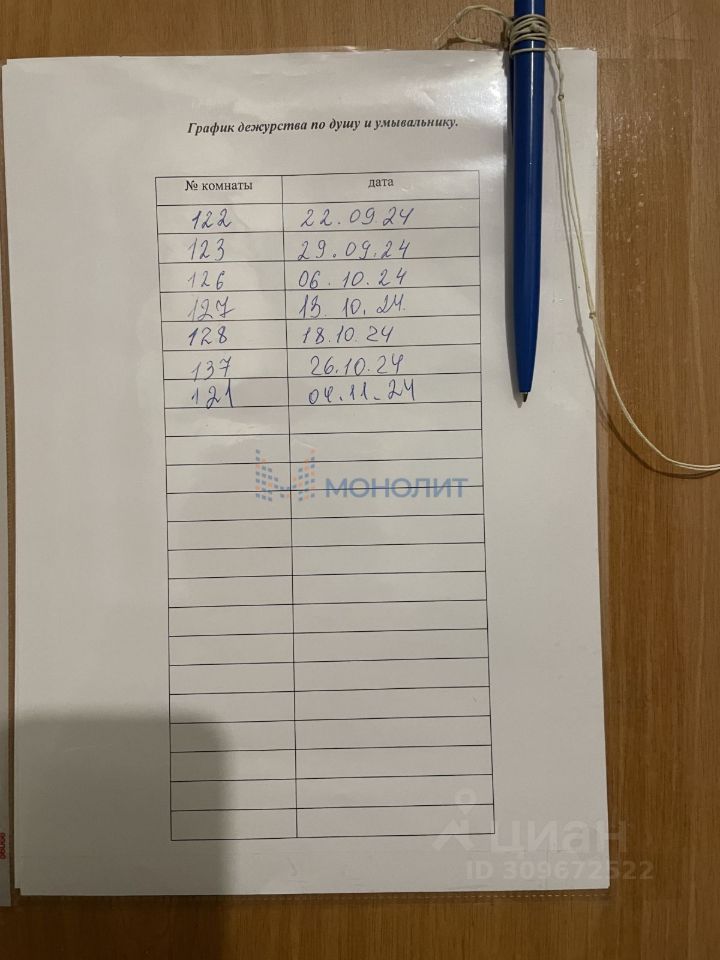 График дежурства по душу и умывальнику.
№ комнаты дата
122 22.09.24
123 29.09.24
126 06.10.24
127 13.10.24.
128 18.10.24
137 26.10.24
121 04.11.24
МОНОЛИТ
циан
ID 309672522